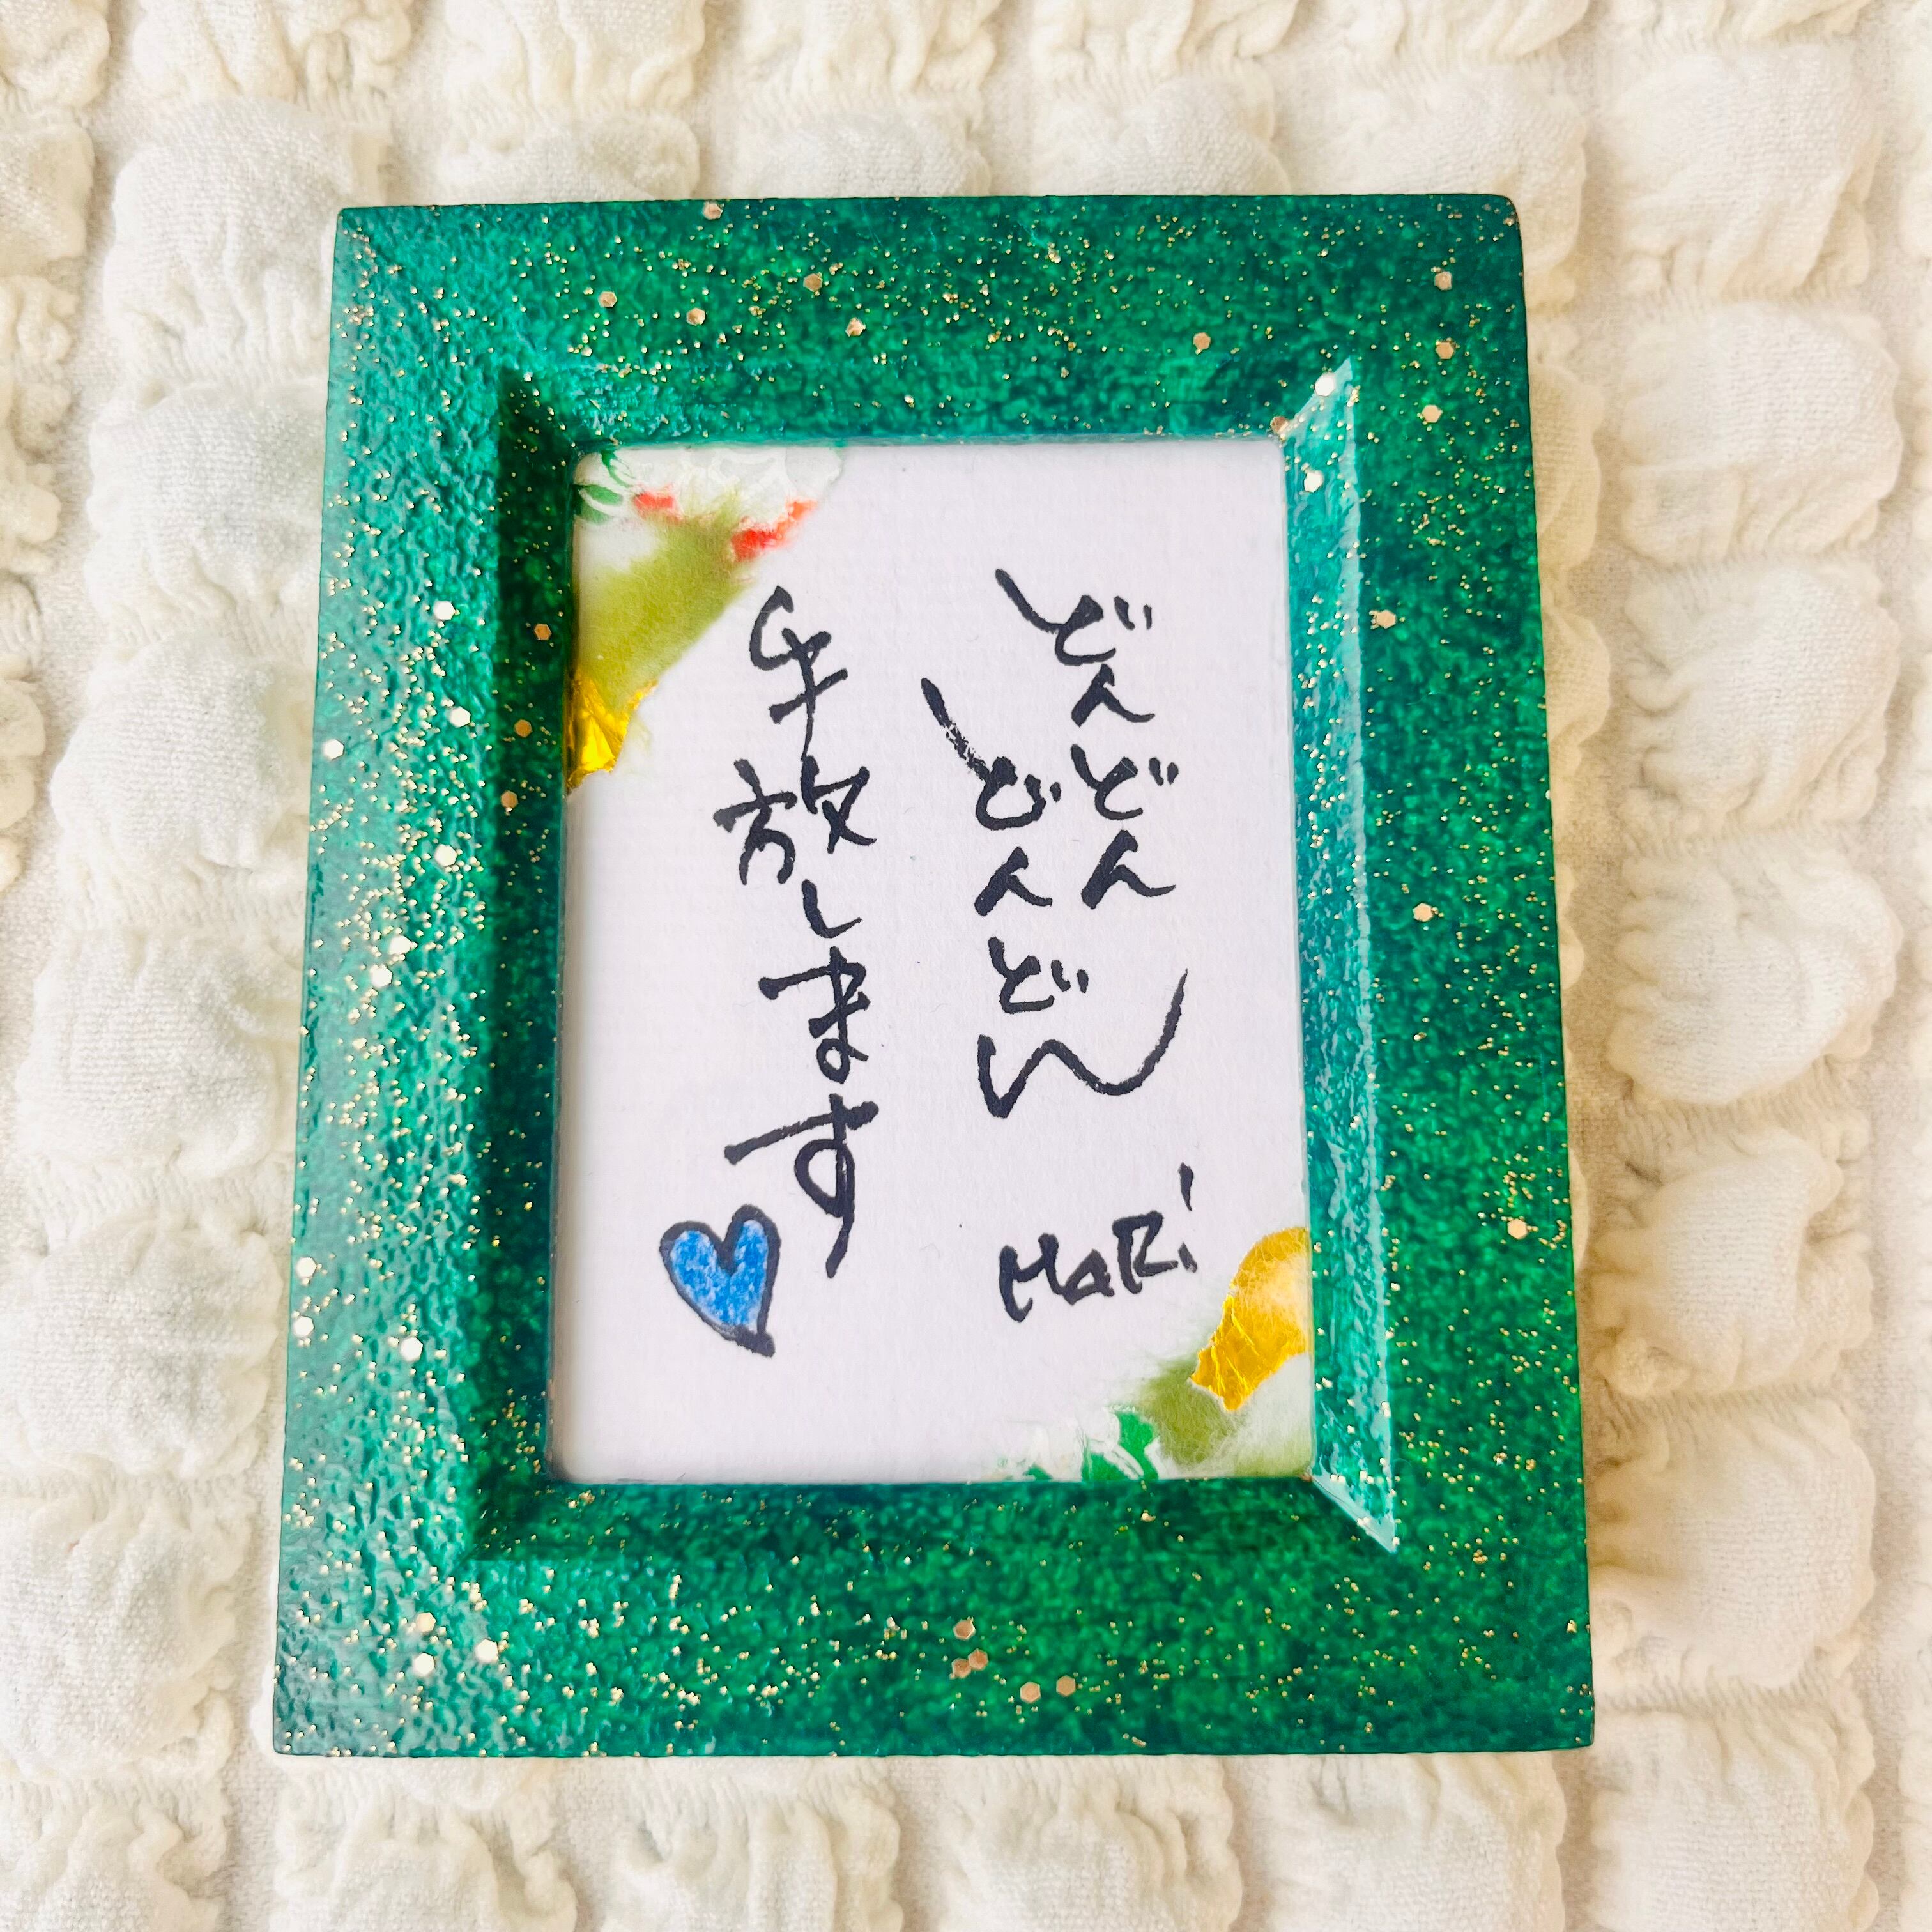 どんどん
どんどん
手放します
MaRi